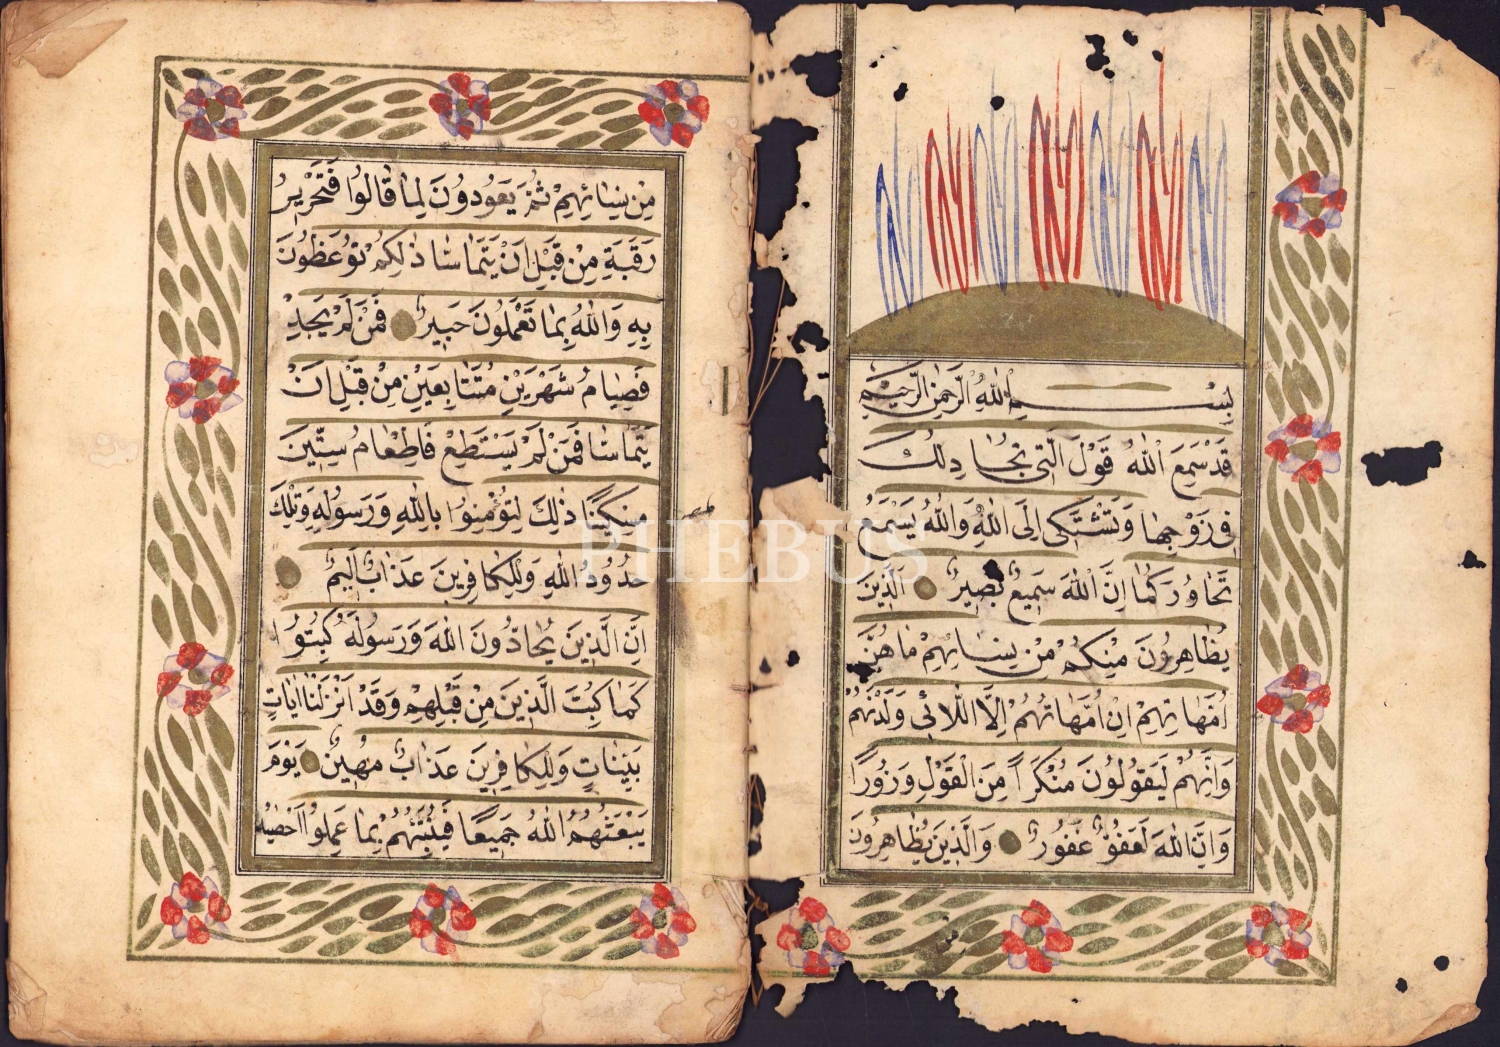 بِسْــــمِ اللّٰهِ الرَّحْمٰنِ الرَّحِيمِ
قَدْ سَمِعَ اللّٰهُ قَوْلَ الَّتِي تُجَادِلُكَ
فِي زَوْجِهَا وَتَشْتَكِي اِلَى اللّٰهِ وَاللّٰهُ يَسْمَعُ
تَحَاوُرَكُمَا اِنَّ اللّٰهَ سَمِيعٌ بَصِيرٌ الَّذِينَ
يُظَاهِرُونَ مِنْكُمْ مِنْ نِسَائِهِمْ مَا هُنَّ
اُمَّهَاتِهِمْ اِنْ اُمَّهَاتُهُمْ اِلَّا اللَّائِي وَلَدْنَهُمْ
وَاِنَّهُمْ لَيَقُولُونَ مُنْكَرًا مِنَ الْقَوْلِ وَزُورًا
وَاِنَّ اللّٰهَ لَعَفُوٌّ غَفُورٌ وَالَّذِينَ يُظَاهِرُونَ
مِنْ نِسَائِهِمْ ثُمَّ يَعُودُونَ لِمَا قَالُوا فَتَحْرِيرُ
رَقَبَةٍ مِنْ قَبْلِ اَنْ يَتَمَاسَّا ذٰلِكُمْ تُوعَظُونَ
بِهِ وَاللّٰهُ بِمَا تَعْمَلُونَ خَبِيرٌ فَمَنْ لَمْ يَجِدْ
فَصِيَامُ شَهْرَيْنِ مُتَتَابِعَيْنِ مِنْ قَبْلِ اَنْ
يَتَمَاسَّا فَمَنْ لَمْ يَسْتَطِعْ فَاِطْعَامُ سِتِّينَ
مِسْكِينًا ذٰلِكَ لِتُؤْمِنُوا بِاللّٰهِ وَرَسُولِهِ وَتِلْكَ
حُدُودُ اللّٰهِ وَلِلْكَافِرِينَ عَذَابٌ اَلِيمٌ
اِنَّ الَّذِينَ يُحَادُّونَ اللّٰهَ وَرَسُولَهُ كُبِتُوا
كَمَا كُبِتَ الَّذِينَ مِنْ قَبْلِهِمْ وَقَدْ اَنْزَلْنَا اٰيَاتٍ
بَيِّنَاتٍ وَلِلْكَافِرِينَ عَذَابٌ مُهِينٌ يَوْمَ
يَبْعَثُهُمُ اللّٰهُ جَمِيعًا فَيُنَبِّئُهُمْ بِمَا عَمِلُوا اَحْصٰيهُ
PHEBUS